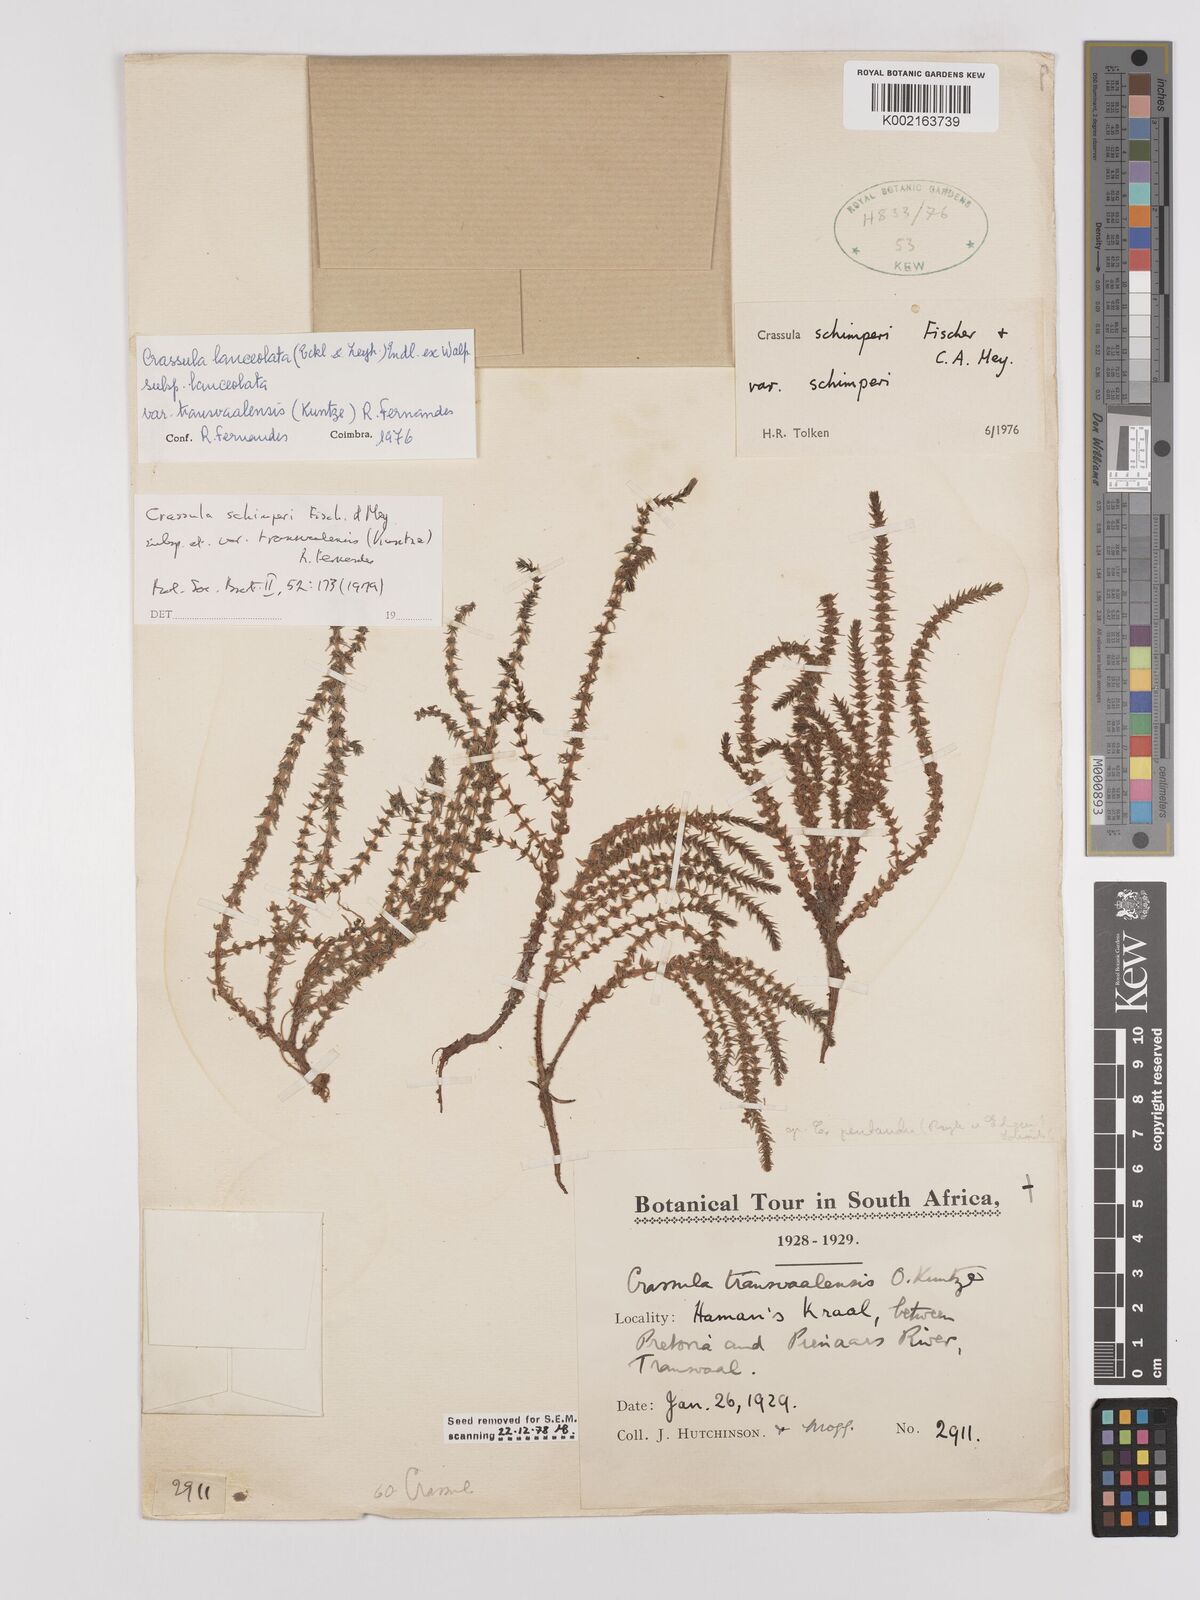 ROYAL BOTANIC GARDENS KEW
K002163739
ROYAL BOTANIC GARDENS
H833/76
53
KEW
Crassula schimperi Fischer +
C. A. Mey.
var. schimperi
H.R. Tolken 6/1976
Crassula lanceolata (Eckl & Zeyh.) Endl. ex Walp
subsp. lanceolata
var. transvaalensis (Kuntze) R. Fernandes
Conf. R. Fernandes Coimbra. 1976
Crassula schimperi Fisch. & Mey
subsp. et. var. transvaalensis (Kuntze)
R. Fernandes
Bol. Soc. Brot. II, 52: 173 (1979)
DET 19
Botanical Tour in South Africa,
1928-1929.
Crassula transvaalensis O. Kuntze
Locality: Haman's Kraal, between
Pretoria and Pienaars River,
Transvaal.
Date: Jan. 26, 1929.
Coll. J. Hutchinson. & Mogg. No. 2911.
Seed removed for S.E.M.
scanning 22.12.78
2911
60 Crassul
inches
centimetres
Don Williams
M000893
Royal Botanic Gardens
Kew
0 1 2 3 4 5 6 7 8 9 10 cm
copyright reserved